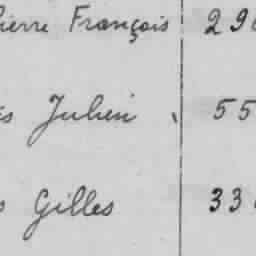 Pierre François 29
Julien 55
Gilles 33